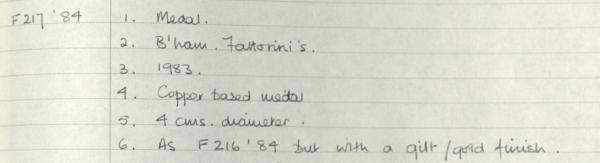 F217 '84 1. Medal.
2. B'ham. Fattorini's.
3. 1983.
4. Copper based medal
5. 4 cms. diameter.
6. As F216 '84 but with a gilt/gold finish.